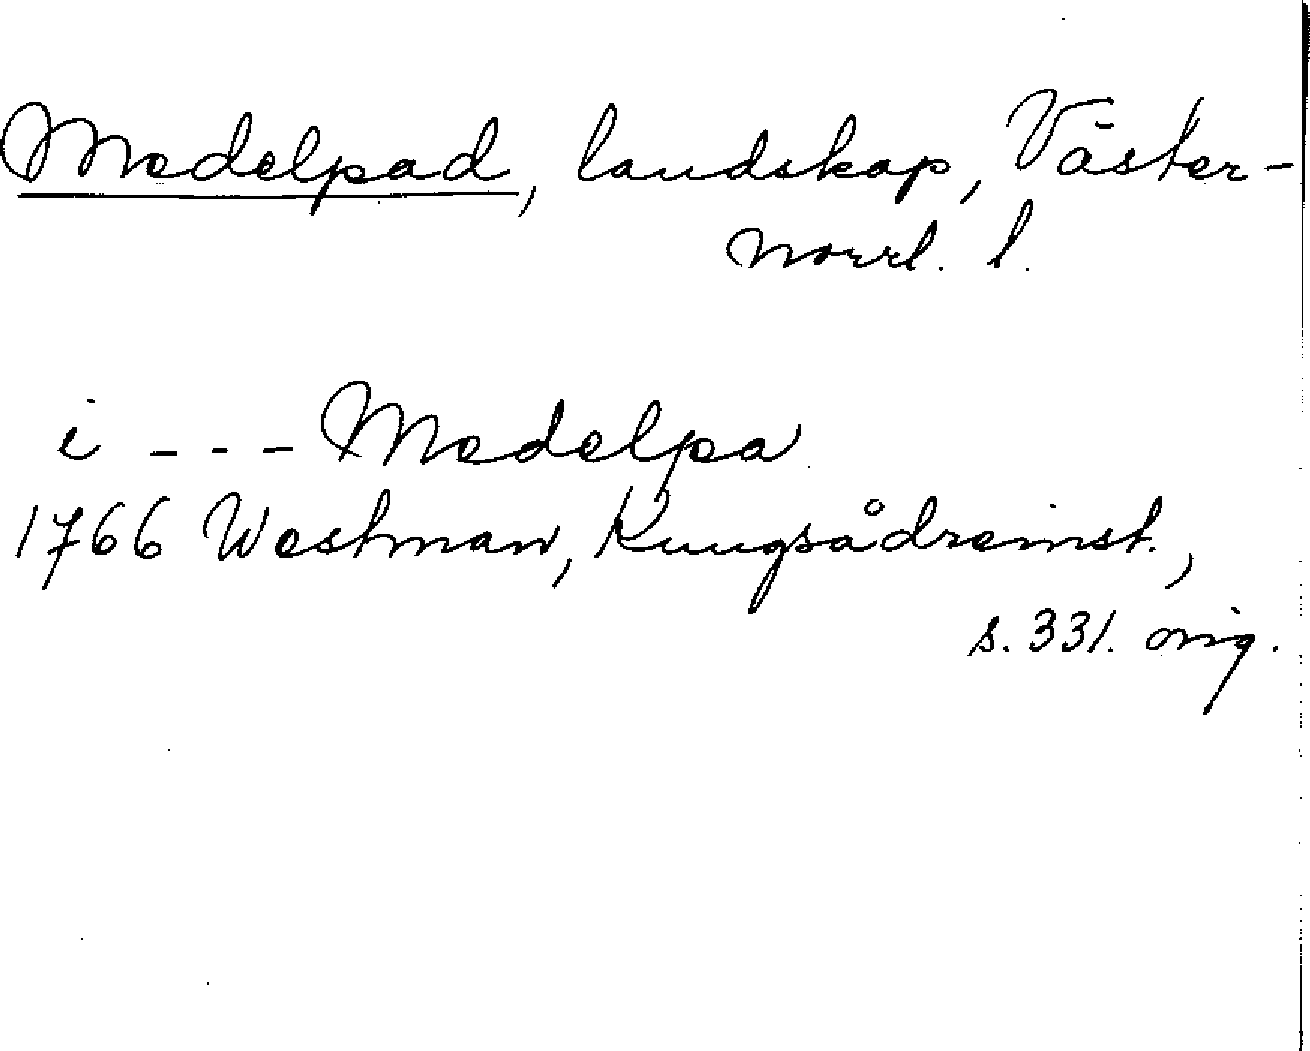 Medelpad, landskap, Väster-
norrl. l.
i --- Medelpa
1766 Westman, Kungsådreinst.,
s. 331. orig.